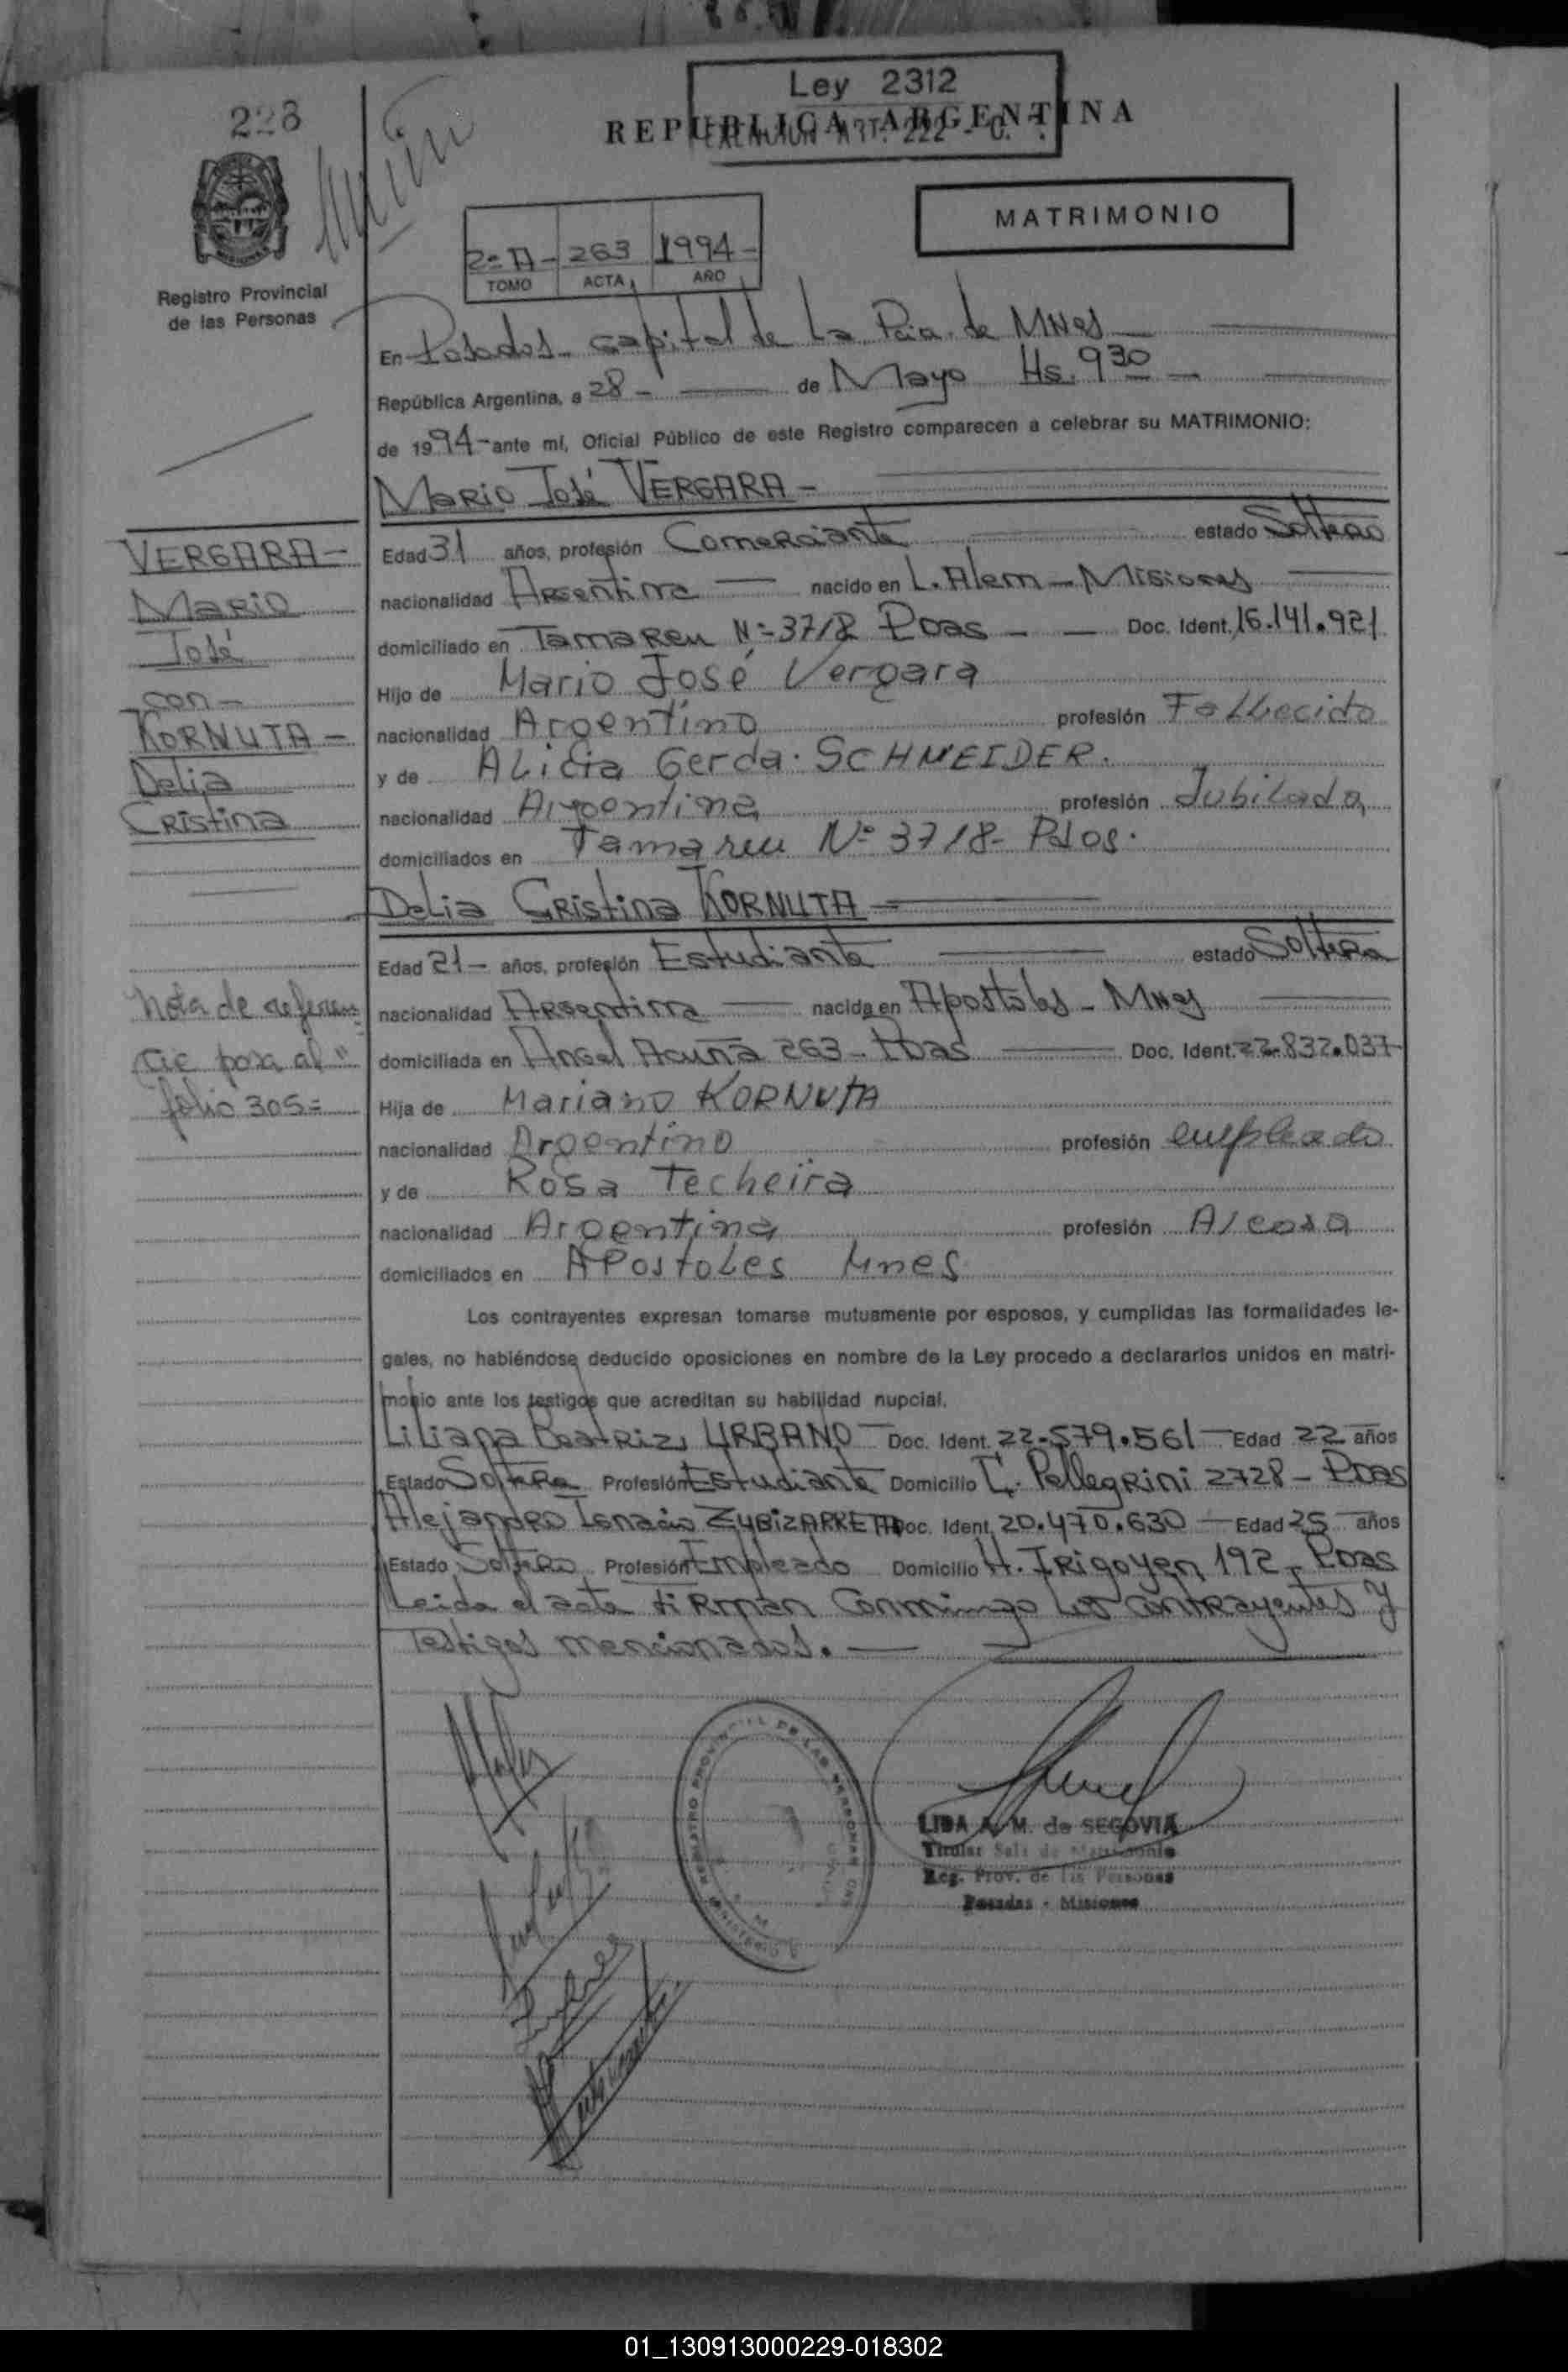 Ley 2312
REPUBLICA ARGENTINA
EXENCION ART. 222 - C.
223
MATRIMONIO
2º A - 263 1994 -
TOMO ACTA AÑO
Registro Provincial
de las Personas
En Posadas - capital de La Pcia. de Mnes
República Argentina, a 28 - de Mayo Hs. 9 30 -
de 1994 - ante mí, Oficial Público de este Registro comparecen a celebrar su MATRIMONIO:
Mario José VERGARA -
Edad 31 años, profesión Comerciante estado Soltero
nacionalidad Argentina nacido en L. Alem - Misiones
domiciliado en Tamareu Nº 3718 Pdas - Doc. Ident. 16.141.921
Hijo de Mario José Vergara
nacionalidad Argentino profesión Fallecido
y de Alicia Gerda SCHNEIDER.
nacionalidad Argentina profesión Jubilada
domiciliados en Tamareu Nº 3718 - Pdas.
Delia Cristina KORNUTA
Edad 21 - años, profesión Estudiante estado Soltera
nacionalidad Argentina nacida en Apostoles - Mnes
domiciliada en Angel Acuña 263 - Pdas Doc. Ident. 22.832.037
Hija de Mariano KORNUTA
nacionalidad Argentino profesión empleado
y de Rosa Techeira
nacionalidad Argentina profesión A/casa
domiciliados en Apostoles Mnes
Los contrayentes expresan tomarse mutuamente por esposos, y cumplidas las formalidades le-
gales, no habiéndose deducido oposiciones en nombre de la Ley procedo a declararlos unidos en matri-
monio ante los testigos que acreditan su habilidad nupcial.
Liliana Beatriz URBANO - Doc. Ident. 22.579.561 - Edad 22 años
Estado Soltera Profesión Estudiante Domicilio C. Pellegrini 2728 - Pdas
Alejandro Ignacio ZUBIZARRETA Doc. Ident. 20.470.630 - Edad 25 años
Estado Soltero Profesión Empleado Domicilio H. Irigoyen 192 - Pdas
Leida el acta firman conmingo los contrayentes y
testigos mencionados. -
VERGARA -
Mario
José
con -
KORNUTA -
Delia
Cristina
Nota de referen
cie pasa al
folio 305 =
REGISTRO PROVINCIAL DE LAS PERSONAS
MINISTERIO
LIDA A. M. de SEGOVIA
Titular Sala de Matrimonio
Reg. Prov. de las Personas
Posadas - Misiones
01_130913000229-018302